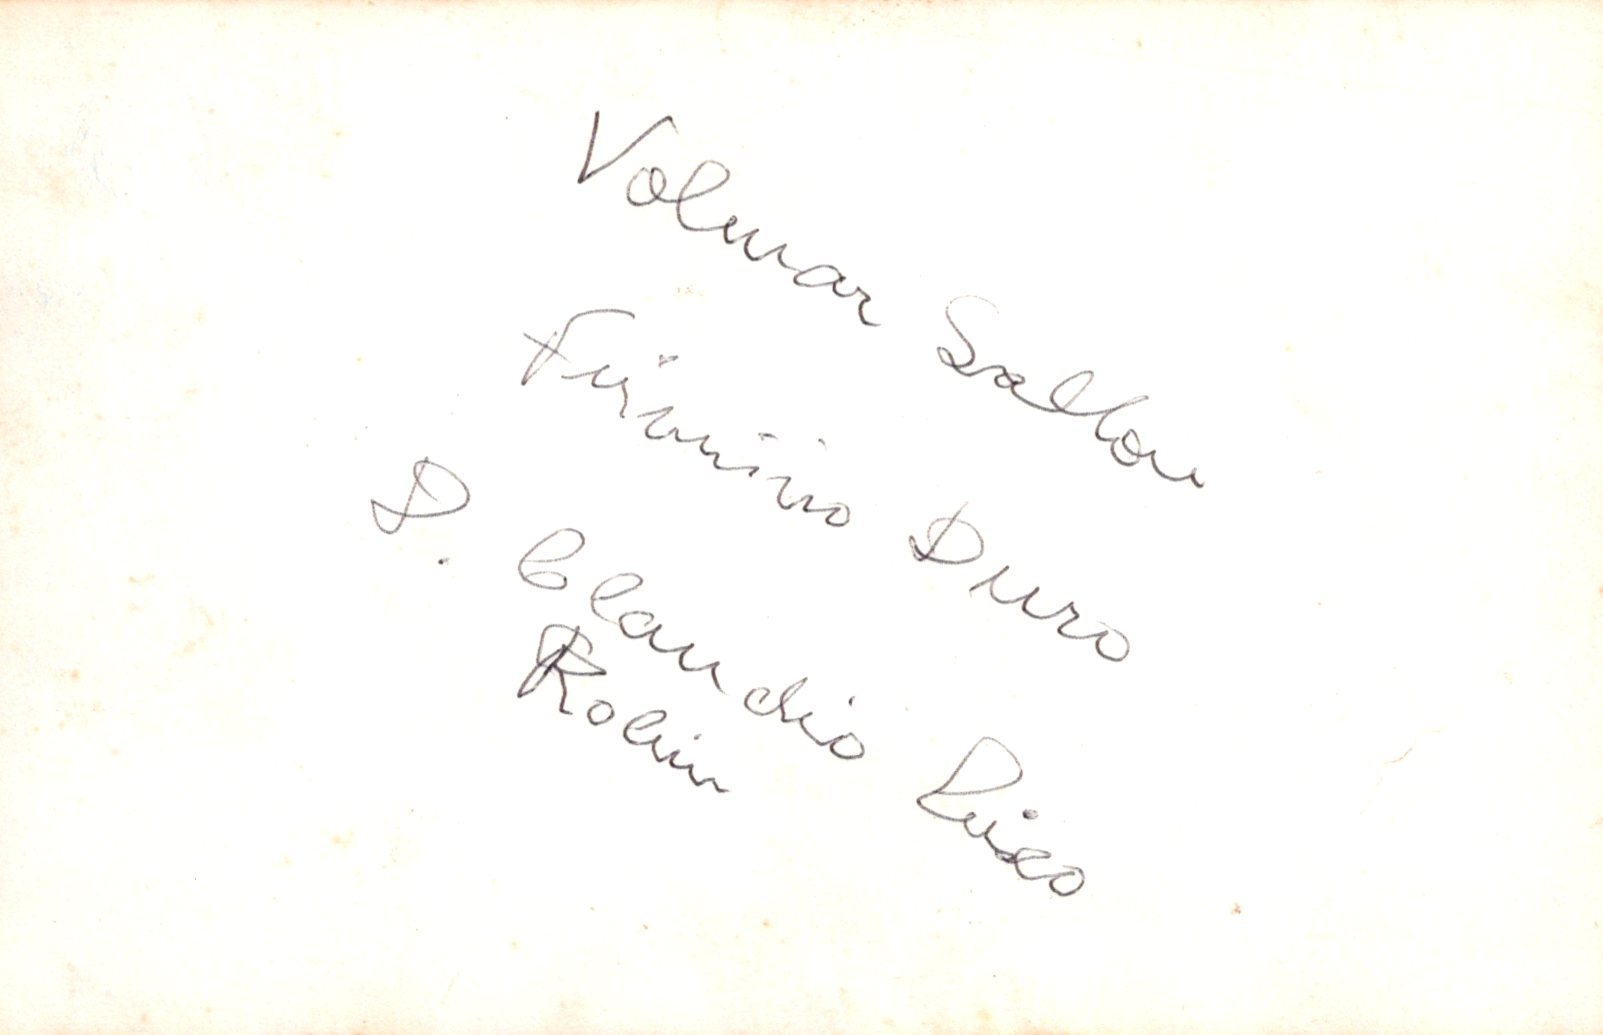 Volmar Salton
Firmino Duro
D. Claudio
Rolim